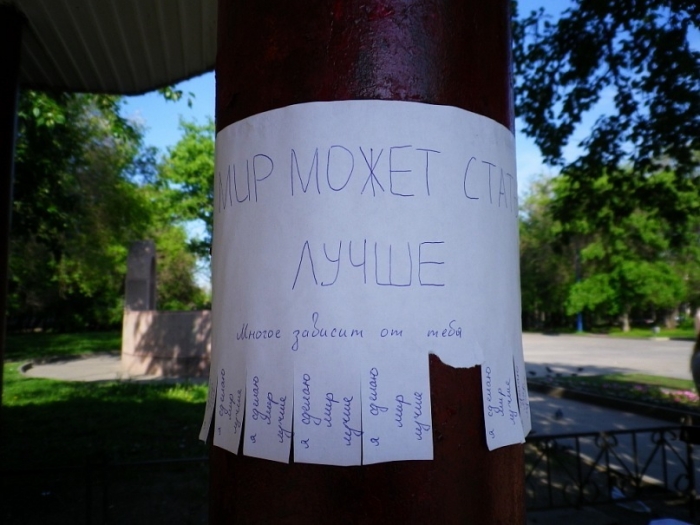 МИР МОЖЕТ СТАТЬ
ЛУЧШЕ
Многое зависит от тебя
я сделаю
мир
лучше
я сделаю
мир
лучше
я сделаю
мир
лучше
я сделаю
мир
лучше
я сделаю
мир
лучше